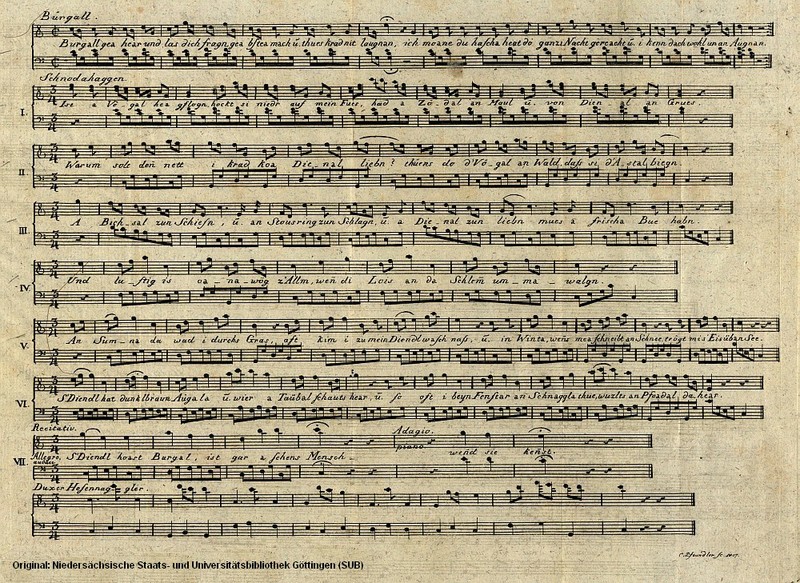 Burgall.
Burgall gea hear und las dich fragn, gea bstea mach u. thues krad nit laugnan, ich moane du hascha heut do ganzi Nacht u. i kenn da's wohl un an Augnan.
Schnodahaggen
I. Ise a Vö-gal hea gflogn, hockt si niedr auf mein Fues, had a Zö-dal an Maul u. von Dien al an Grues
II. Warum solt den nett i krad koa Die-nal liebn? thüens do d'Vö-gal an Wald, dass si d'A-stal biegn.
III. A Bich-sal zun Schiesn, u. an Stousring zun Schlagn, u. a Die-nal zun liebn mues a frischa Bue habn.
IV. Und lu-stig is oa-na-wög z'Allm, wen di Lois an da Schlem um-ma-walgn.
V. An Sum-na da wad i durchs Gras, oft kim i zu mein Diendl wasch nass, u. in Winta, wens mea schneibt an Schnee, trögt mi's Eis üban See.
VI. S'Diendl hat dunklbraun Augala u. wier a Taübal schauts hear, u. so oft i beyn Fenstar an Schnaggla thue, wuzlts an Pfoadal da hear.
Recitativ. Adagio.
piano
VII. Allegro S'Diendl hoast Burgal, ist gar a schens Mensch- wend sie kenst.
Duxer Hosennaggler.
Original: Niedersächsische Staats- und Universitätsbibliothek Göttingen (SUB)